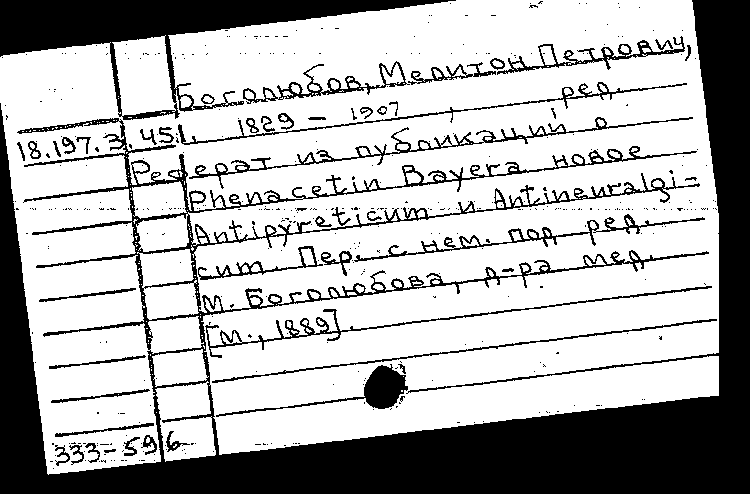 Боголюбов, Мелитон Петрович,
18.197.3.451. 1829 – 1907, ред.
Реферат из публикаций о
Phenacetin Bayera новое
Antipyreticum и Antineuralgi=
cum. Пер. с нем. под ред.
М. Боголюбова, д-ра мед.
[М., 1889].
333-596